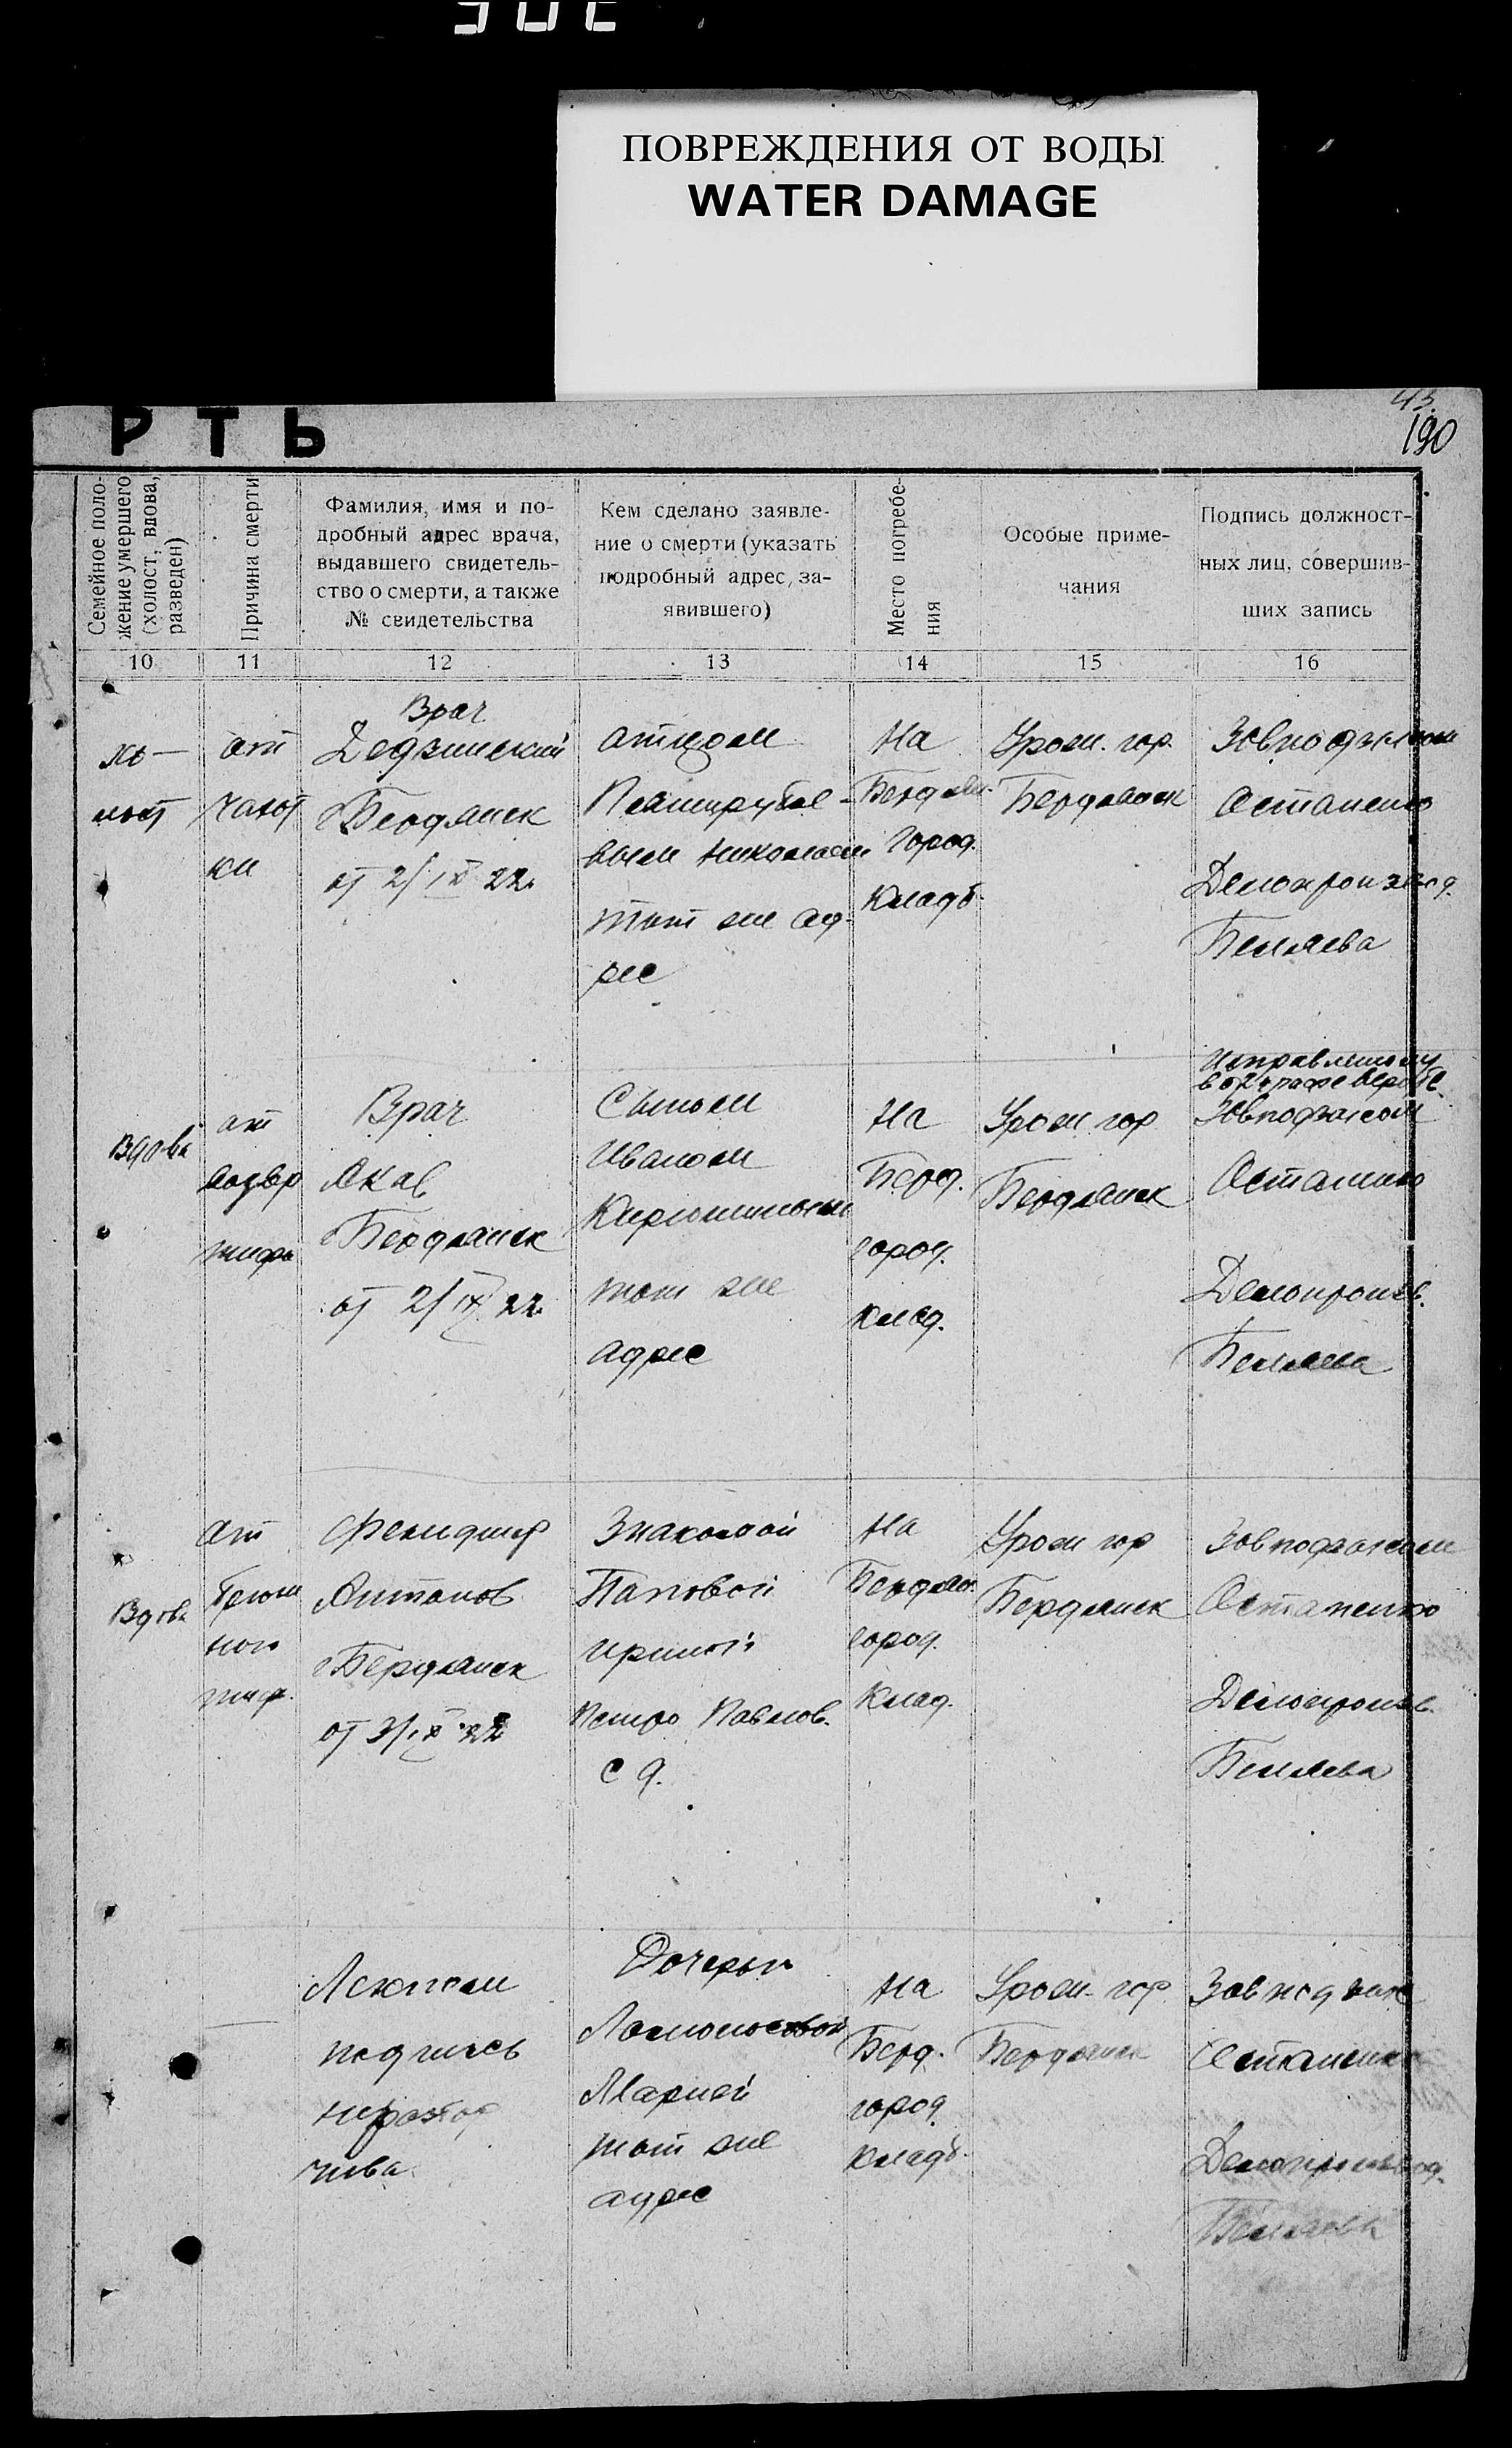 ПОВРЕЖДЕНИЯ ОТ ВОДЫ
WATER DAMAGE
43.
190
РТЬ
Семейное поло-
жение умершего
(холост, вдова,
разведен)
Причина смерти
Фамилия, имя и по-
дробный адрес врача,
выдавшего свидетель-
ство о смерти, а также
№ свидетельства
Кем сделано заявле-
ние о смерти (указать
подробный адрес, за-
явившего)
Место погребе-
ния
Особые приме-
чания
Подпись должност-
ных лиц, совершив-
ших запись
10
11
12
13
14
15
16
хо-
лост
от
чахот
ки
Врач
Бердянск
от 2/IX 22
отцом
Николаем
тот же ад-
рес
На
Бердян.
город.
кладб.
Урож. гор.
Бердянск
Завподзагсом
Остапенко
Делопроизвод.
Беляева
Вдова
от
возвр
тифа
Врач
Бердянск
от 2/IX 22
Сыном
Иваном
тот же
адрес
На
Берд.
город.
клад.
Урож гор
Бердянск
Исправленому
верить
Завподзагсом
Остапенко
Делопроизв.
Беляева
Вдова
от
брюш
ного
тиф.
Фельдшер
Антонов
Бердянск
от 3/IX 22
Знакомой
Поповой
Ириной
Петро Павлов.
с д.
На
Бердян.
город.
клад.
Урож гор
Бердянск
Завподзагсом
Остапенко
Делопроизв.
Беляева
Лекпом
подпись
неразбор
чива.
Дочерью
Ломоносовой
Марией
тот же
адрес
На
Берд.
город.
кладб.
Урож. гор.
Бердянск
Завподзагс
Остапенко
Делопроизвод.
Беляева